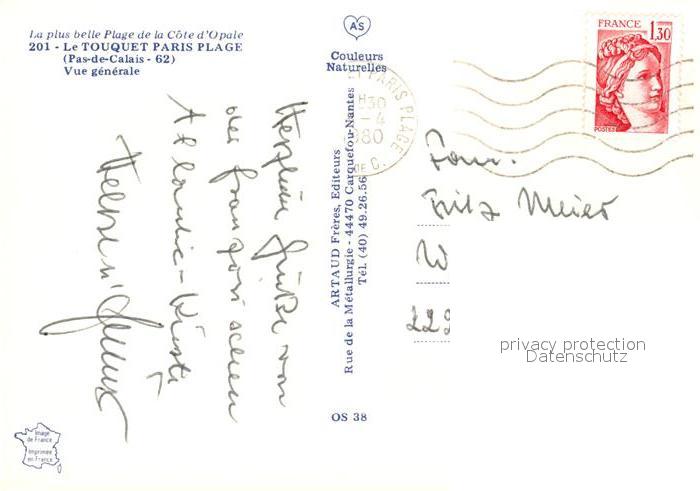 La plus belle Plage de la Côte d'Opale
201 - Le TOUQUET PARIS PLAGE
(Pas-de-Calais - 62)
Vue générale
AS
Couleurs
Naturelles
FRANCE
1,30
POSTES
PARIS PLAGE
H30
-4
980
C.
Herzliche Grüße von
der französischen
Atlantic-Küste
ARTAUD Frères, Editeurs
Rue de la Métallurgie - 44470 Carquefou-Nantes
Tél. (40) 49.26.56
Fam.
Fritz Meier
W
223
privacy protection
Datenschutz
OS 38
Image
de France
Imprimée
en France